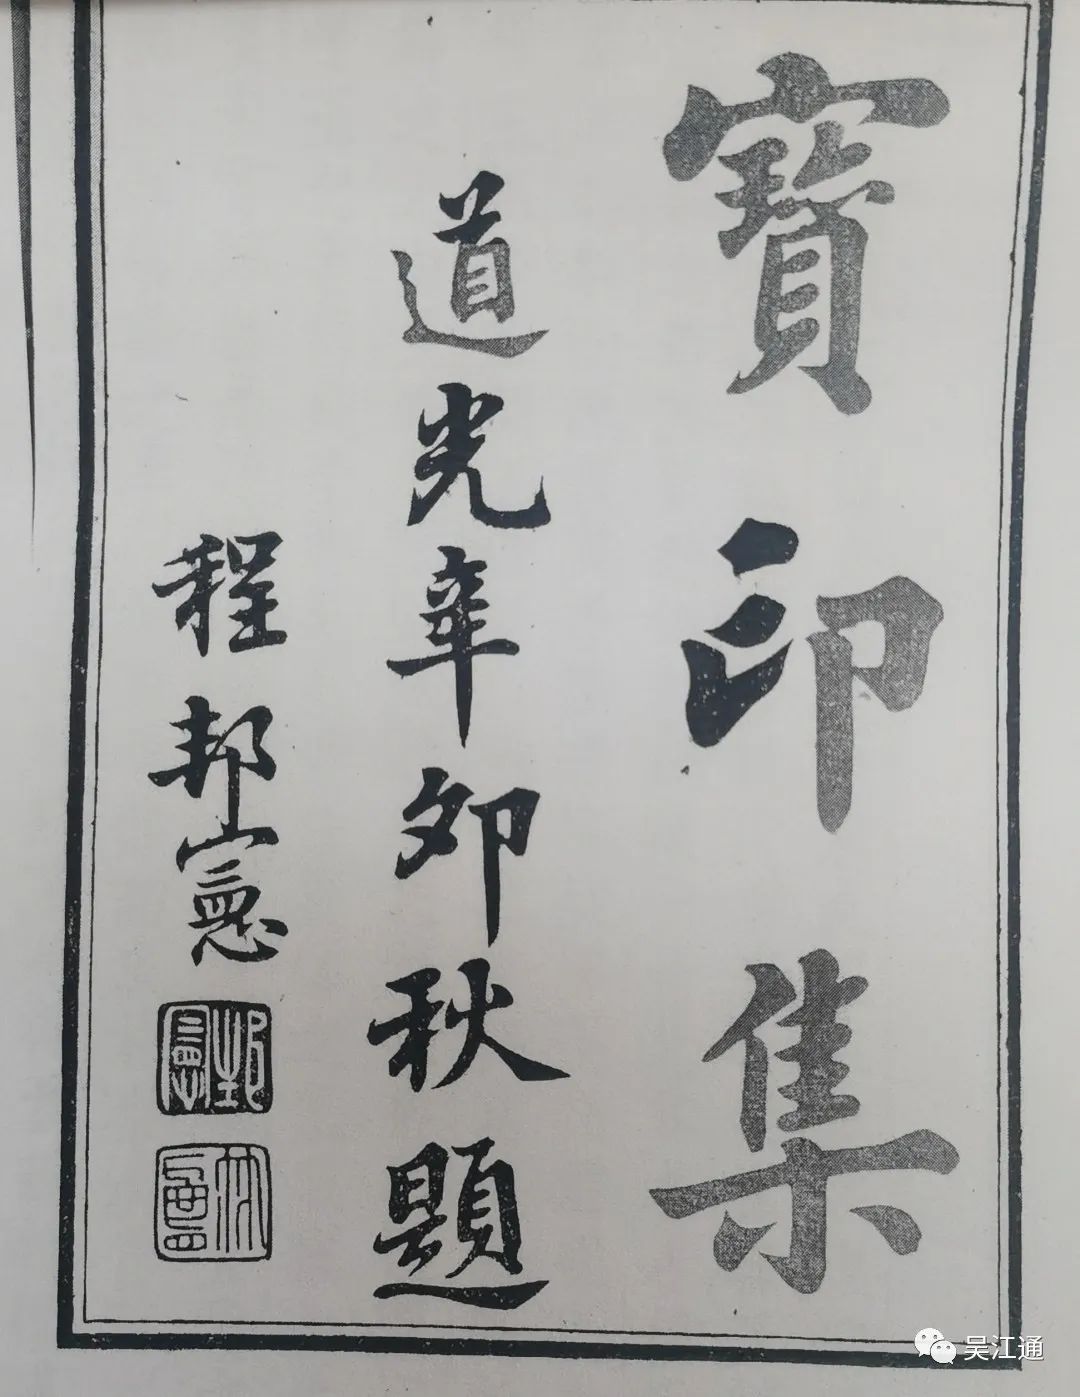 寶印集
道光辛卯秋題
程邦憲
吴江通